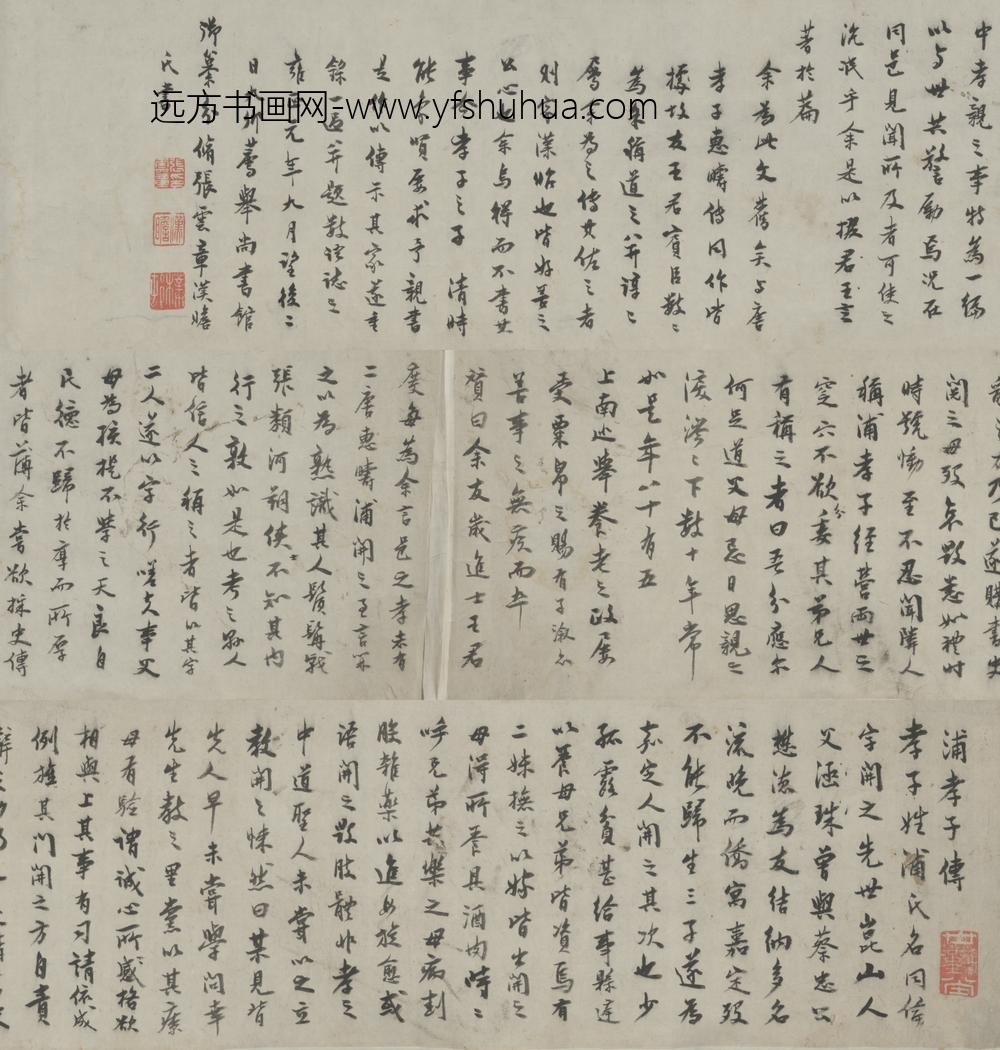 浦孝子傳
孝子姓浦氏名同偹
字開之先世崑山人
父涵珠曾與蔡忠公
懋德為友結納多名
流晚而僑寓嘉定歿
不能歸生三子遂為
嘉定人開之其次也少
孤露貧甚給事縣廷
以養母兄弟皆資焉有
二妹撫之以嫁皆出開之
母得所養具酒肉時〻
呼兄弟共樂之母病刲
股雜藥以進母旋愈或
語開之毀肢體非孝之
中道聖人未嘗以之立
教開之悚然曰某見背
先人早未嘗學問幸
先生教之里黨以其療
母有驗謂誠心所感格欲
相與上其事有司請依成
例旌其門開之方自責
閱三母歿哀毀悉如禮時
時號慟至不忍聞隣人
稱浦孝子經營兩世三
窆六不欲委其弟兄人
有稱之者曰吾分應尔
何足道父母忌日思親之
淚涔〻下數十年常
如是年八十有五
上南巡舉養老之政屢
受粟帛之賜有子
善事之無疾而卒
贊曰余友歲進士王君
每為余言邑之孝未有
二唐惠疇浦開之王言
之以為熟識其人鬚髯戟
張類河朔俠士不知其內
行之敦如是也考之縣人
皆信人之稱之者皆以其字
二人遂以字行嗟夫事父
母為孩提不學之天良自
民德不歸於厚而所厚
者皆薄余嘗欲採史傳
中孝親之事特為一編
以与世共警勵焉況在
同邑見聞所及者可使之
泯乎余是以掇君王言
著於篇
余為此文舊矣与唐
孝子惠疇傳同作皆
據故友王君賓臣數〻
為余稱道之并諄〻
屬余為之傳其佐之者
則漢昭也皆好善之
公心也余烏得而不書其
事於孝子之子 清時
能屡求予親書
是傳以傳示其家遂重
錄一過并題數語誌之
雍正元年九月望後二
日薦舉尚書館
御纂分脩張雲章漢瞻
氏書
远方书画网-www.yfshuhua.com